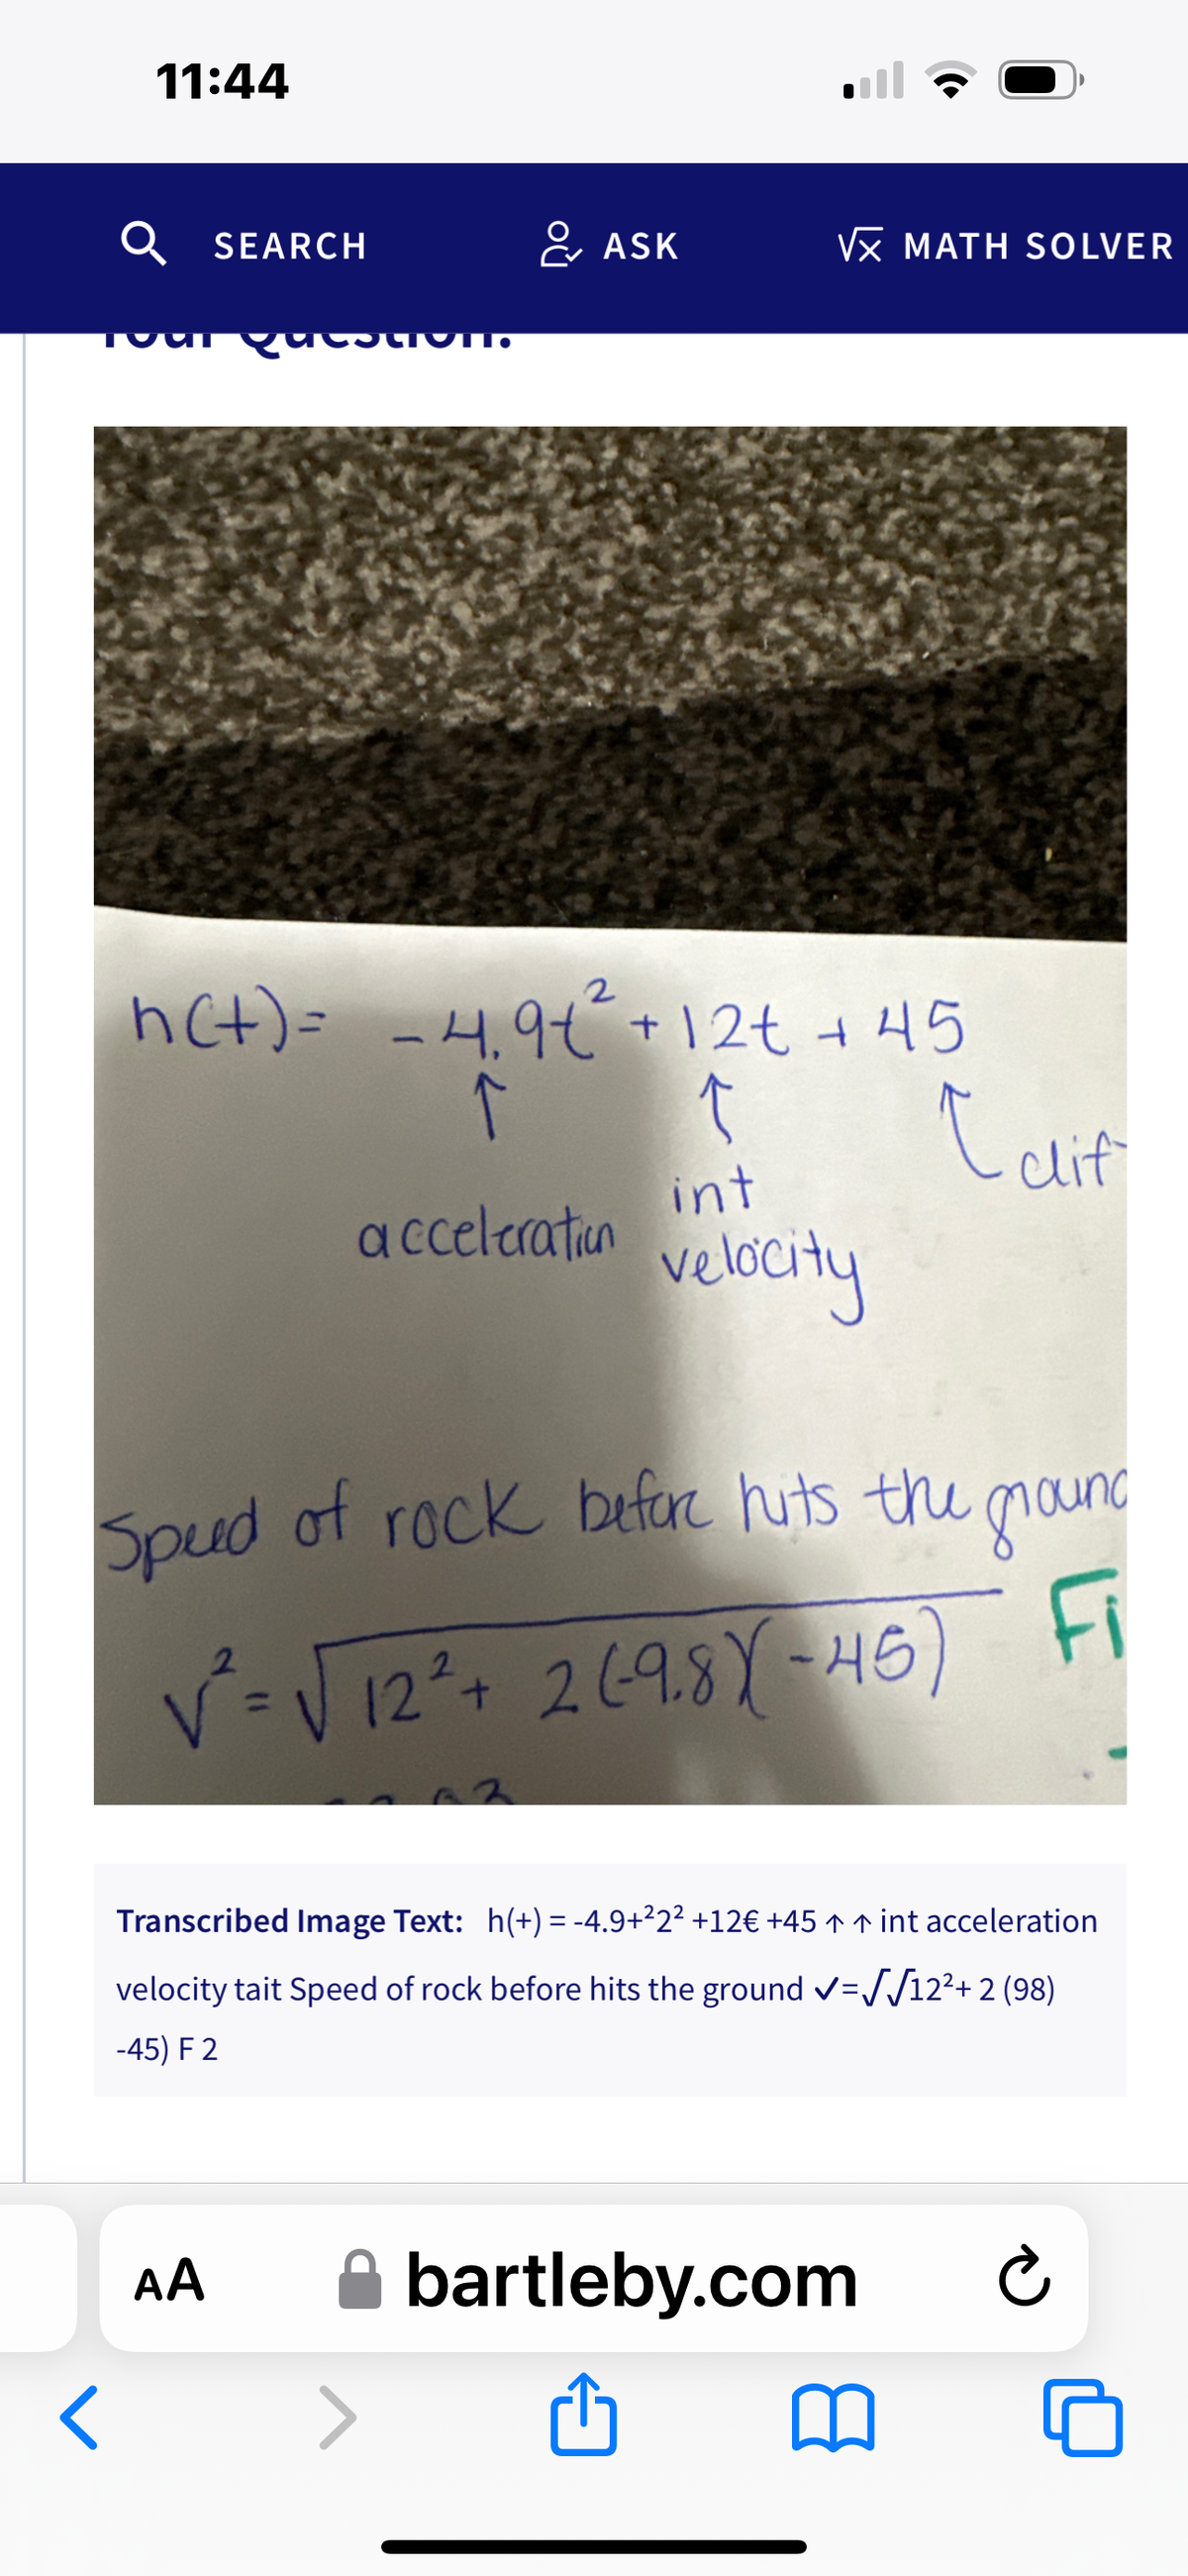 11:44
SEARCH ASK √x MATH SOLVER
Your Question:
h(t) = -4.9t² + 12t + 45
↑ ↑ ↑ clif
acceleration int velocity
Speed of rock before hits the ground
v² = √12² + 2(-9.8)(-45)
Fi
Transcribed Image Text: h(+) = -4.9+²2² +12€ +45 ↑ ↑ int acceleration
velocity tait Speed of rock before hits the ground ✓=√√12²+ 2 (98)
-45) F 2
AA bartleby.com